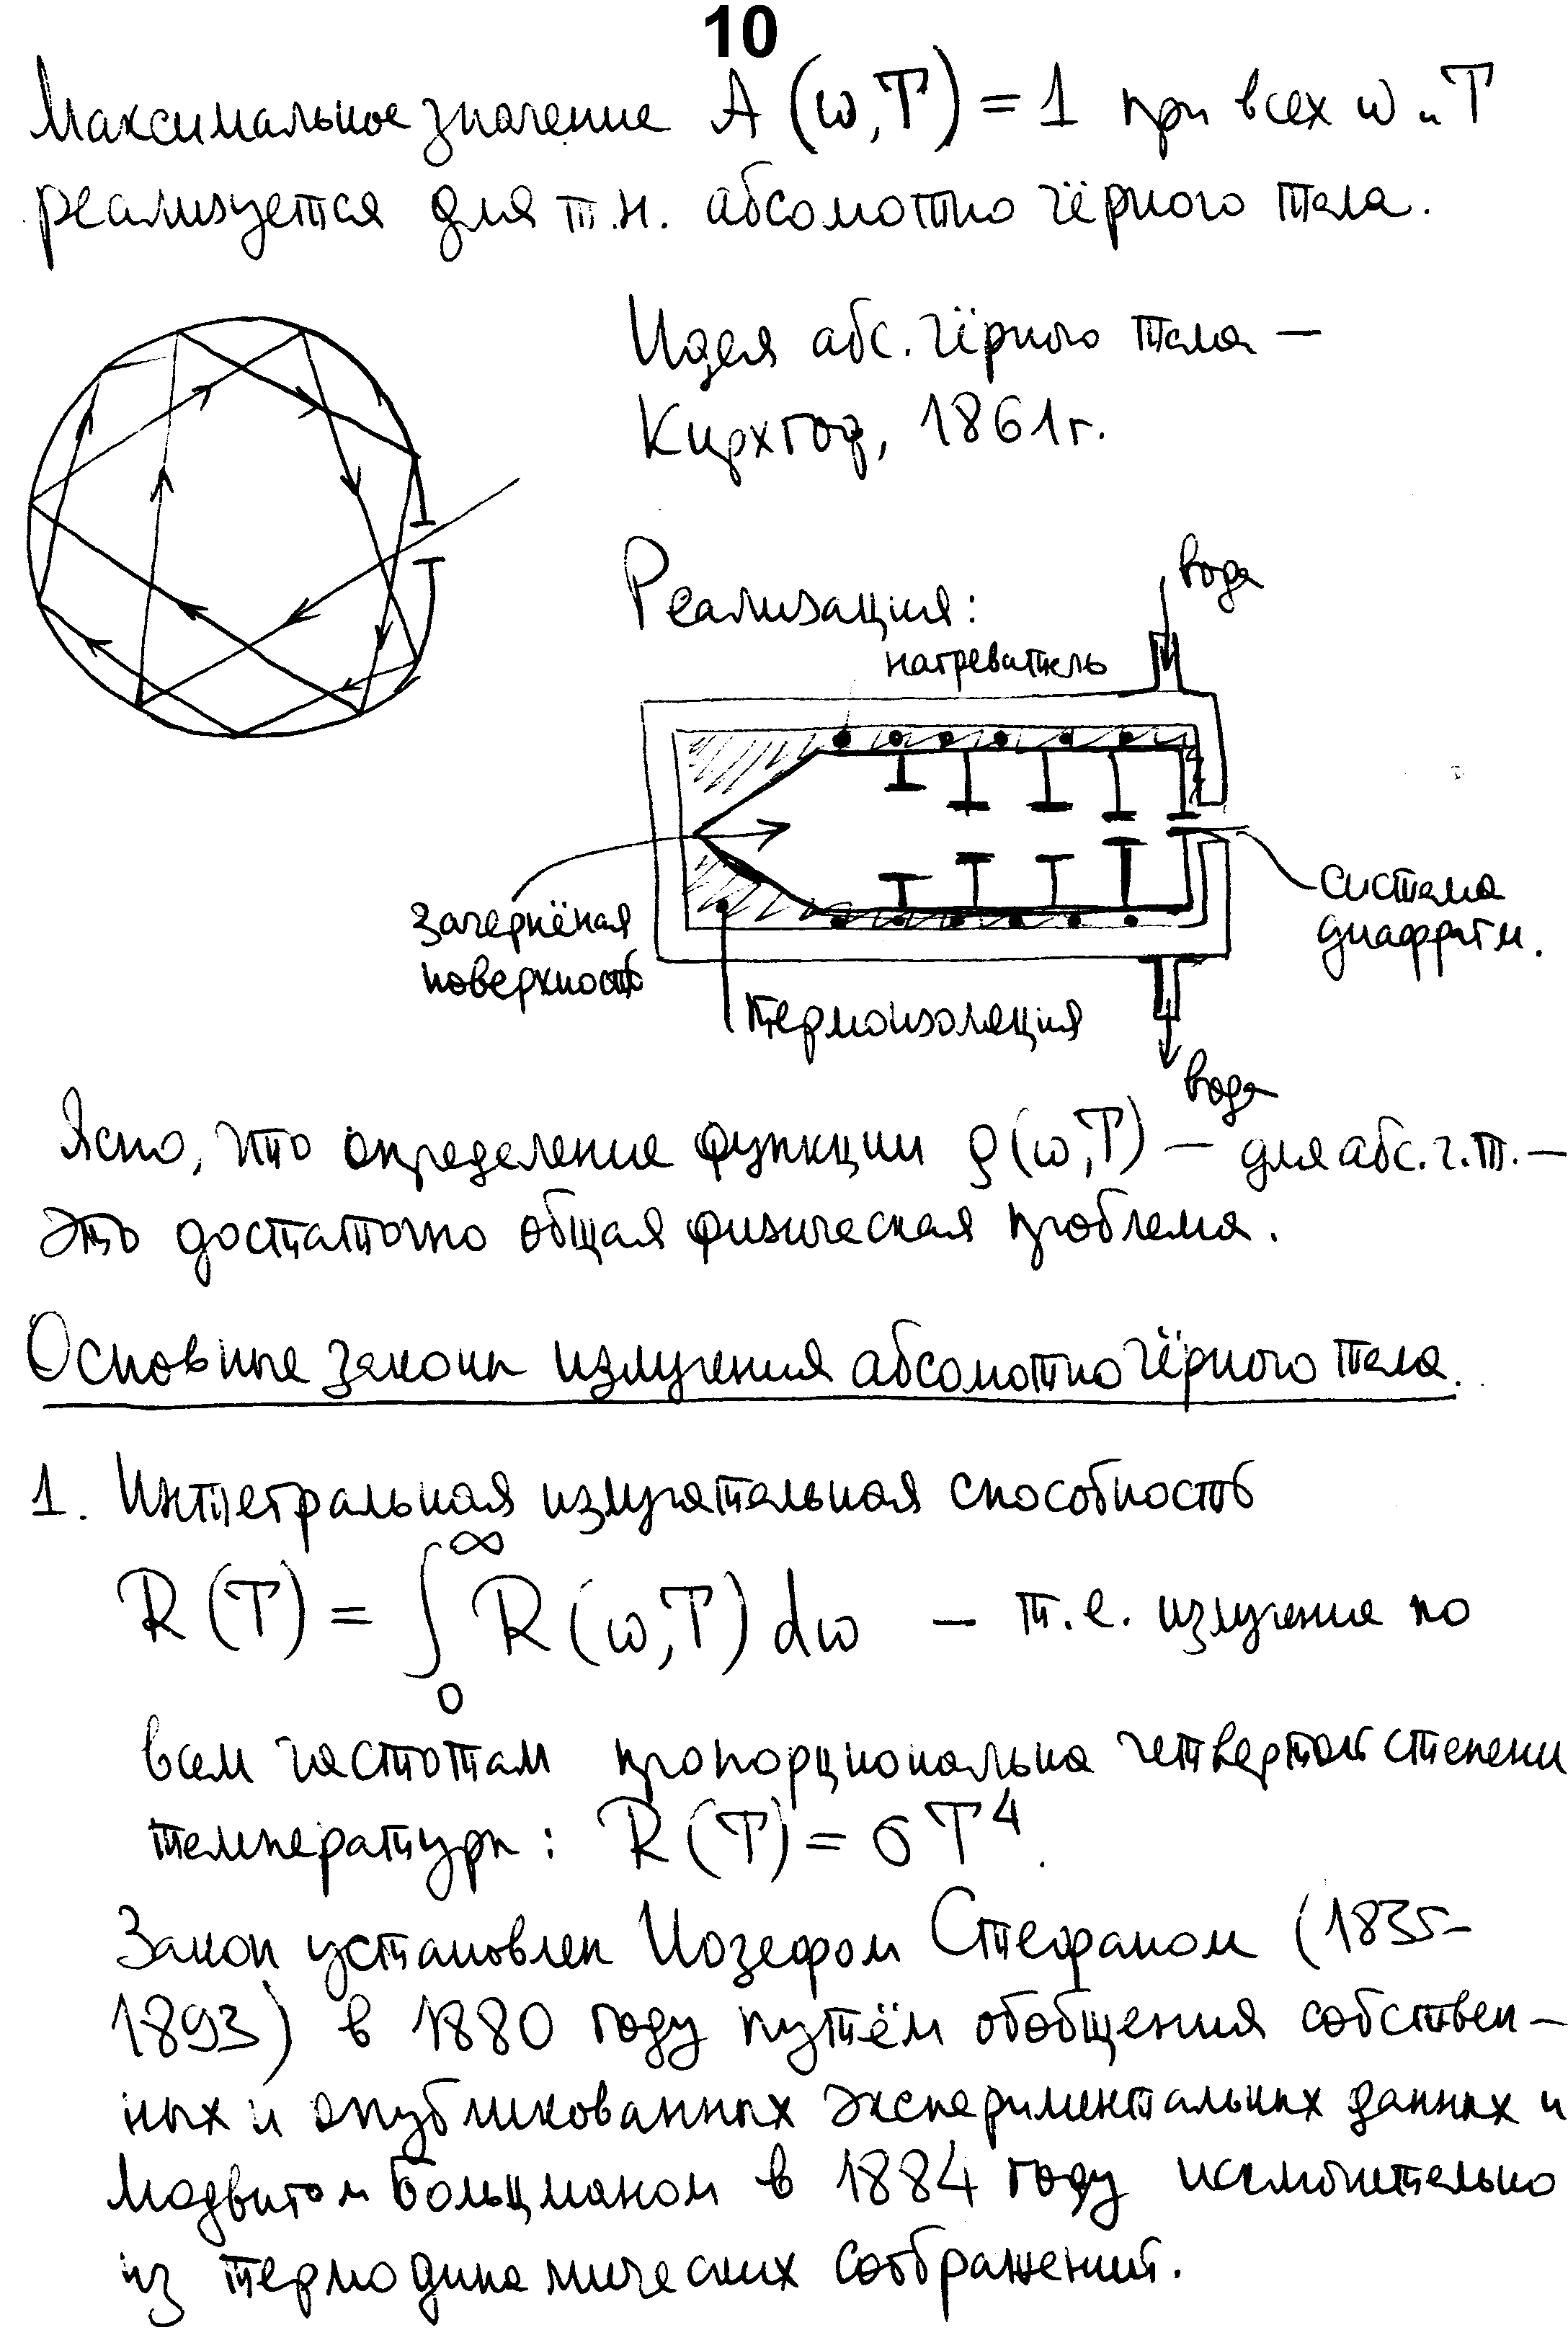 10
Максимальное значение A(ω,T) = 1 при всех ω и T
реализуется для т.н. абсолютно чёрного тела.
Идея абс. чёрного тела —
Кирхгоф, 1861г.
Реализация:
вода
нагреватель
система
диафрагм.
зачернёная
поверхность
термоизоляция
вода
Ясно, что определение функции ρ(ω,T) — для абс.ч.т. —
это достаточно общая физическая проблема.
Основные законы излучения абсолютно чёрного тела.
1. Интегральная излучательная способность
R(T) = ∫₀^∞ R(ω,T) dω — т.е. излучение по
всем частотам пропорциональна четвертой степени
температуры: R(T) = σT⁴.
Закон установлен Иозефом Стефаном (1835-
1893) в 1880 году путём обобщения собствен-
ных и опубликованных экспериментальных данных и
Людвигом Больцманом в 1884 году исключительно
из термодинамических соображений.